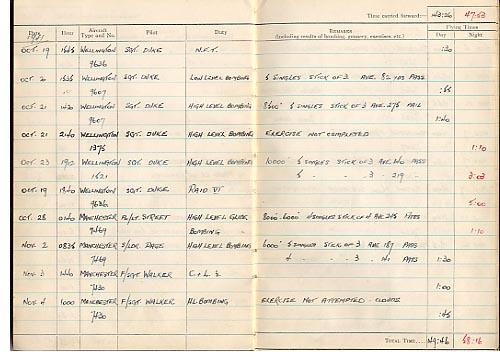 Time carried forward:— 43:26 47:53
1941
Hour Aircraft Type and No. Pilot Duty REMARKS Flying Times
(including results of bombing, gunnery, exercises, etc.) Day Night
OCT. 19 WELLINGTON SGT. DUKE N.F.T. :30
9636
OCT. 20 WELLINGTON SGT. DUKE LOW LEVEL BOMBING 6 SINGLES STICK OF 3 AVE. 82 YDS PASS
9607 :55
OCT. 21 WELLINGTON SGT. DUKE HIGH LEVEL BOMBING 6 SINGLES STICK OF 3 AVE. 275 FAIL
9607 1:40
OCT. 21 2140 WELLINGTON SGT. DUKE HIGH LEVEL BOMBING EXERCISE NOT COMPLETED
1375 1:10
OCT 23 WELLINGTON SGT DUKE HIGH LEVEL BOMBING 10000' 6 SINGLES STICK OF 3 AVE. 140 PASS
1621 6 - - 3 - 219 - 3:03
OCT. 19 1840 WELLINGTON SGT. DUKE RAID
9636 5:00
OCT. 28 0140 MANCHESTER STREET HIGH LEVEL BOMBING 8000-6000' STICK OF 4 AVE 245 PASS
7469 1:10
NOV. 2 0835 MANCHESTER S/LDR. HIGH LEVEL BOMBING 6000' 6 SINGLES STICK OF 3 AVE 187 PASS
7469 4 - - 3 - 141 PASS 1:30
NOV 3 1440 MANCHESTER F/SGT WALKER C + L S
7430 1:00
NOV. 4 1000 MANCHESTER F/SGT WALKER HL BOMBING EXERCISE NOT ATTEMPTED - CLOUDS
7430 :45
TOTAL TIME.... 49:46 58:16